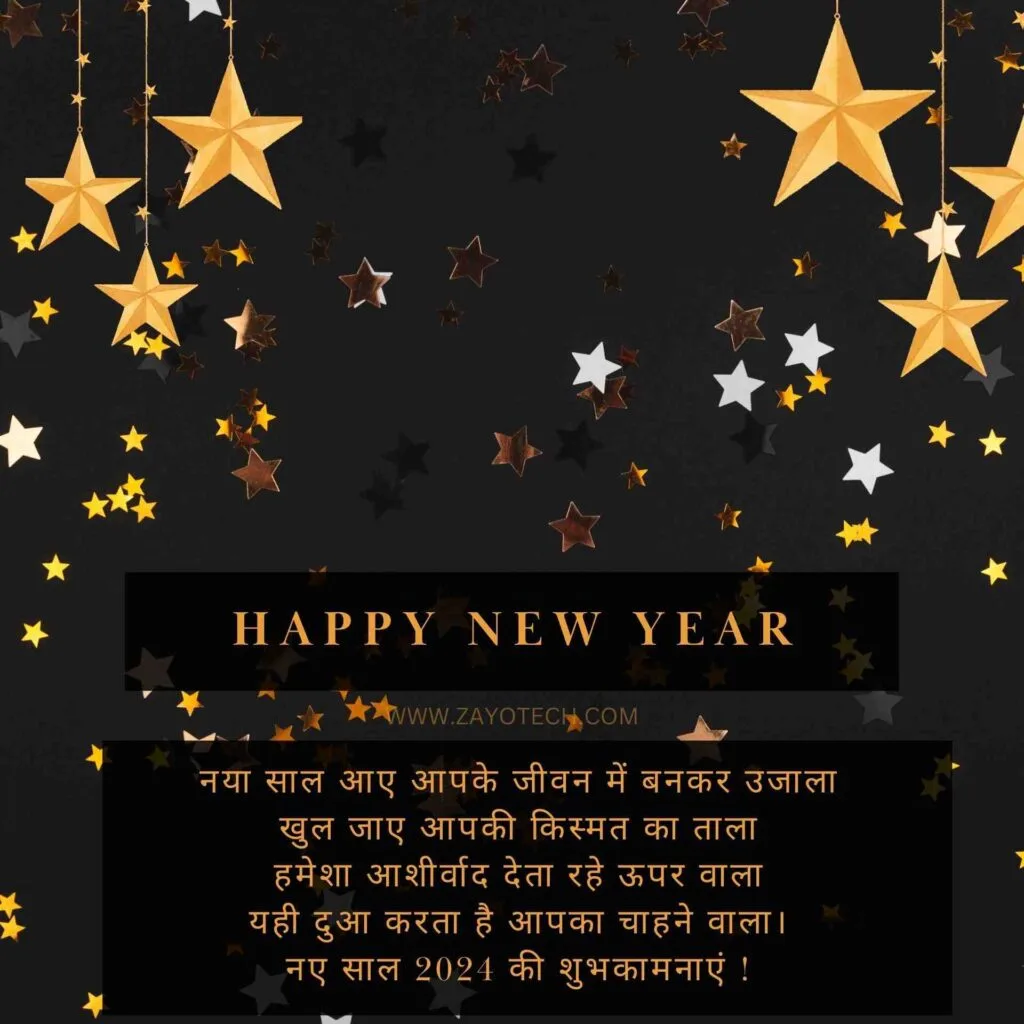 HAPPY NEW YEAR
WWW.ZAYOTECH.COM
नया साल आए आपके जीवन में बनकर उजाला
खुल जाए आपकी किस्मत का ताला
हमेशा आशीर्वाद देता रहे ऊपर वाला
यही दुआ करता है आपका चाहने वाला।
नए साल 2024 की शुभकामनाएं !